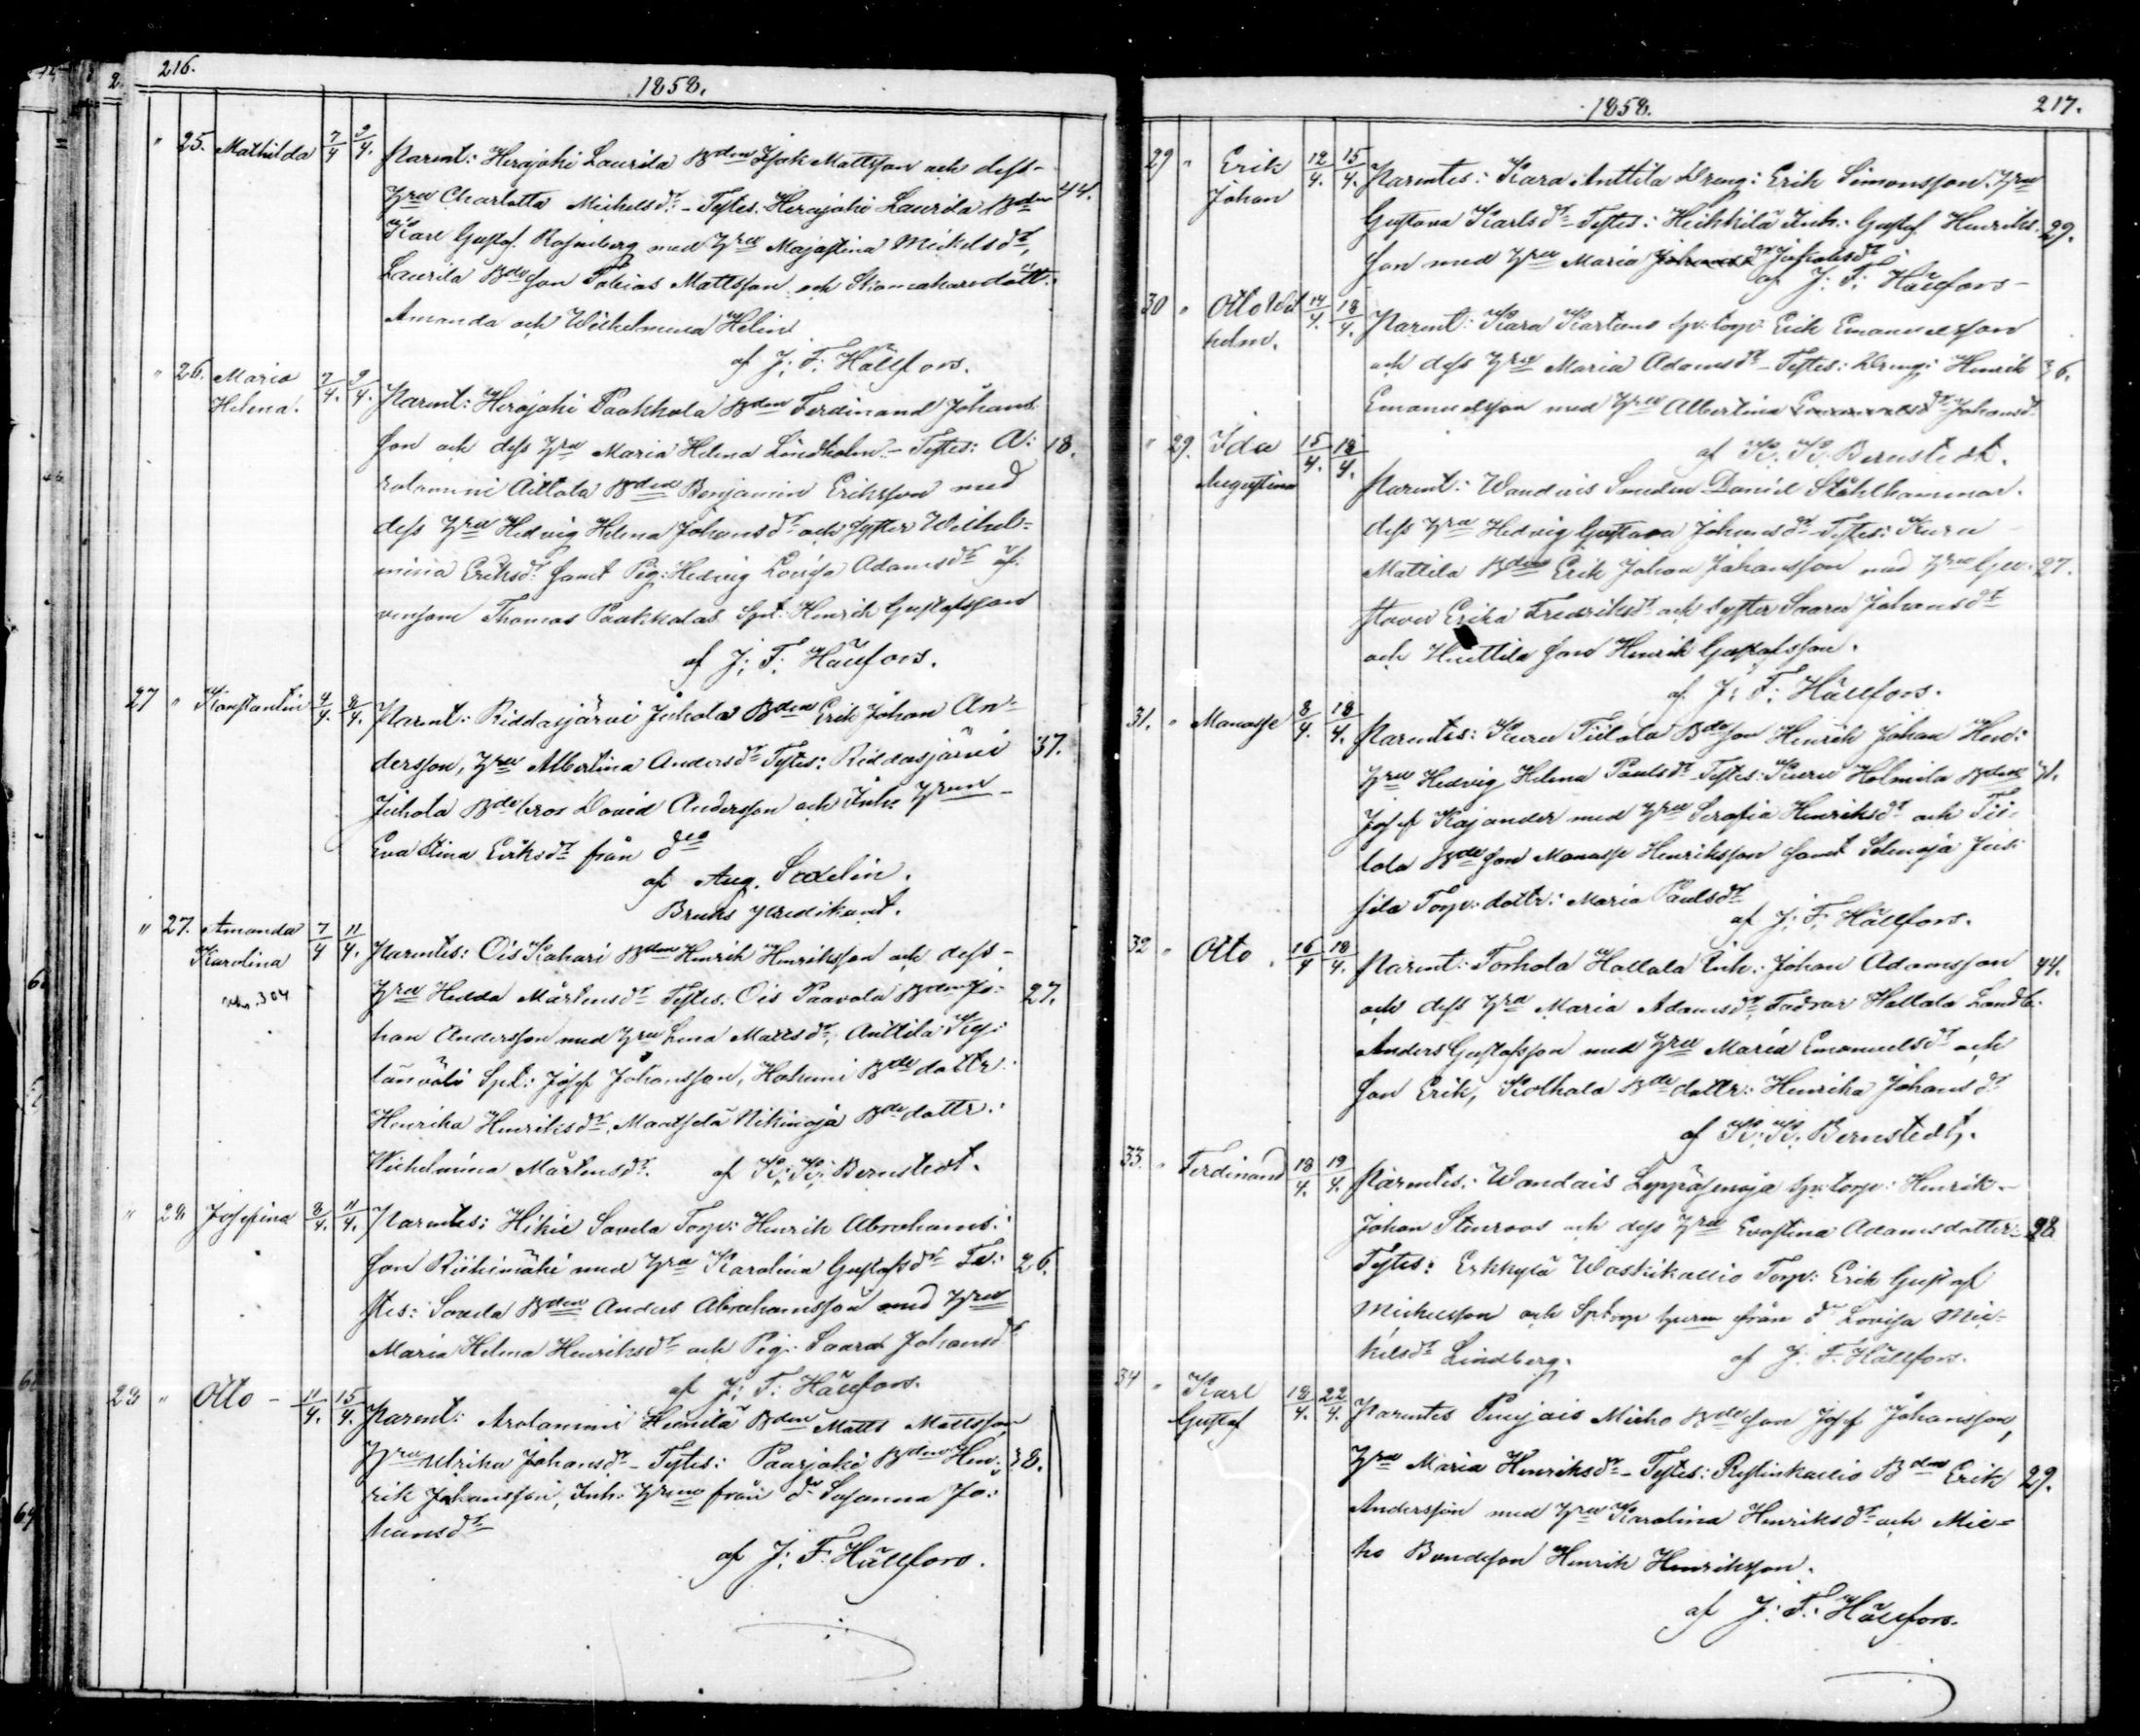 216.
1858.
" 25. Mathilda 7/4 9/4. Parent: Herajoki Laurila Bden Isak Mattsson och dess
Hru Charlotta Michelsdr. - Testes: Herajoki Laurila Bden 44.
Karl Gustaf Rosenberg med Hru Majastina Mickelsdr,
Laurila Bdeson Tobias Mattsson och Skomakaredottr.
Amanda och Wilhelmina Helin
af J: F: Hällfors.
" 26. Maria 7/4. 9/4. Parent: Herajoki Paakkola Bden Ferdinand Johans
Helena.
son och dess Hru Maria Helena Lindholm - Testes: A: 18.
rolammi Aittola Bden Benjamin Eriksson med
dess Hru Hedvig Helena Johansdr och syster Wilhel=
mina Eriksdr. samt Pig: Hedvig Lovisa Adamsdr
Thomas Paakkolas Spt: Henrik Gustafsson
af J: F: Hällfors.
27 " Konstantin 4/4. 8/4. Parent: Riddasjärvi Juhola Bden Erik Johan An=
dersson, Hru Albertina Andersdr Testes: Riddasjärvi 37.
Juhola Bdebror David Andersson och Inhs Hrun
Eva Stina Eriksdr från do
af Aug. Sadelin.
Bruks predikant.
" 27. Amanda 7/4 11/4. Parentes: Ois Kahari Bden Henrik Henriksson och dess
Karolina
Hru Hedda Mårtensdr Testes. Ois Paavola Bden Jo= 27.
han Andersson med Hru Lena Mattsdr, Anttila
Spt: Josef Johansson, Hakemi Bde dottr.
Henrika Henriksdr, Mantsela Nikinoja Bde dottr.
Wilhelmina Mårtensdr. af K: K: Bernstedt.
" 28 Josefina 8/4. 11/4. Parentes: Hikie Savela Torp: Henrik Abrahams:
son Riihimäki med Hru Karolina Gustafsdr Te: 26.
stes: Savela Bden Anders Abrahamsson med Hru
Maria Helena Henriksdr och Pig: Saara Johansdr
af J: F: Hällfors.
28 " Otto - 11/4. 15/4. Parent: Arolammi Heinilä Bden Matts Mattsson
Hru Ulrika Johansdr - Testes: Paarjoki Bden Hen: 38.
rik Johansson, Inh. Hrun från do Susanna Jo:
hansdr
af J: F: Hällfors.
1858.
217.
29 " Erik 12/4. 15/4. Parentes: Kara Anttila Dreng: Erik Simonsson. Hru
Johan
Gustava Karlsdr - Testes: Heikkilä Inh: Gustaf Henriks 29.
son med Hru Maria Jakobsdr
af J: F: Hällfors -
30 " Otto Wil 14/4. 18/4. Parent: Kara Kartano Sp: torp: Erik Emanuelsson
helm.
och dess Hru Maria Adamsdr - Testes: Dreng: Henrik 36.
Emanuelsson med Hru Albertina Johansd
af K: K: Bernstedt.
" 29. Ida 15/4. 18/4.
Augustina Parent: Wandais Smeden Daniel Stålhammar.
dess Hru Hedvig Gustava Johansdr Testes: Kuru
Mattila Bden Erik Johan Johansson med Hru Gu: 27.
stava Erika Fredriksdr och syster Saara Johansdr
och Huttila son Henrik Gustafsson.
af J: F: Hällfors.
31. " Manasse 8/4. 18/4. Parentes: Kuru Tiilola Bdeson Henrik Johan Hen:
Hru Hedvig Helena Paulsdr Testes: Kuru Holmila Bden 31.
Josef Kajander med Hru Serafia Henriksdr och Tii:
lola Bdeson Manasse Henriksson samt Selinoja Jus:
sila Torp: dottr: Maria Paulsdr
af J: F: Hällfors.
32 " Otto. 16/4 18/4. Parent: Torhola Hallala Inh: Johan Adamsson 44.
och dess Hru Maria Adamsdr, Faddrar Hallala Landb.
Anders Gustafsson med Hru Maria Emanuelsdr och
son Erik, Kolkala Bde dottr: Henrika Johansdr
af K: K: Bernstedt.
33. " Ferdinand 18/4. 19/4. Parentes: Wandais Leppäsenoja Sp: torp: Henrik
Johan Stenroos och dess Hru Evastina Adamsdotter 28
Testes: Erkkylä Waskikallio Torp: Erik Gustaf
Michelsson och Sptorp hurun från do Lovisa Mic=
kelsdr Lindberg. af J: F: Hällfors.
34 " Karl 18/4. 22/4. Parentes Puujais Mirho Bdeson Josef Johansson,
Gustaf
Hru Maria Henriksdr - Testes: Ristinkallio Bden Erik 29.
Andersson med Hru Karolina Henriksdr och Mir=
ho Bondeson Henrik Henriksson.
af J: F: Hällfors.